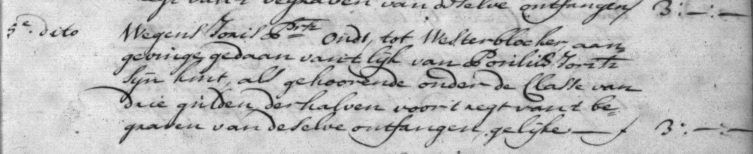 van deselve ontfangen ƒ 3:—:—
5e. dito Wegens Joris Prtz Ondt, tot Westerblocker aan
gevinge gedaan van 't lijk van Pouilus Jortz
sijn kint, als gehoorende onder de Classe van
drie gulden, derhalven voor 't regt van 't be-
graven van deselve ontfangen, gelijke — ƒ 3:—:—